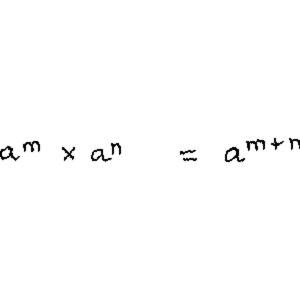 aᵐ × aⁿ = aᵐ⁺ⁿ